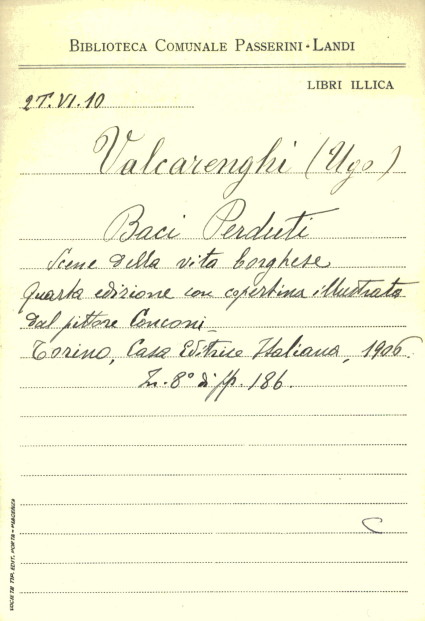 BIBLIOTECA COMUNALE PASSERINI-LANDI
LIBRI ILLICA
2T.VI.10
Valcarenghi (Ugo)
Baci Perduti
Scene della vita borghese
Quarta edizione con copertina illustrata
dal pittore Conconi
Torino, Casa Editrice Italiana, 1906.
In. 8° di pp. 186.